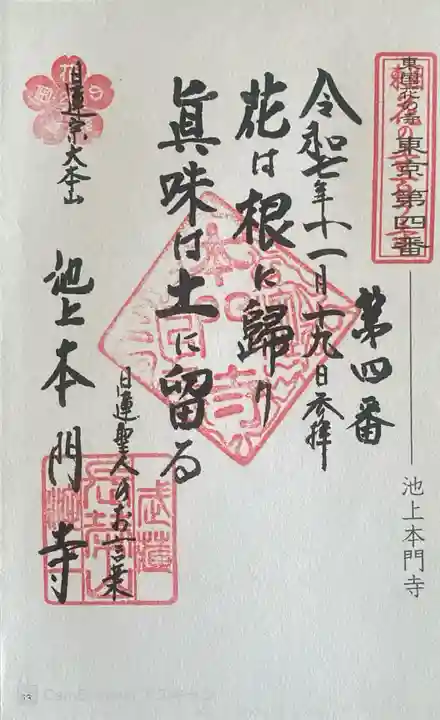 東国花の寺
東京第四番
第四番
令和七年十一月十九日参拝
花は根に歸り
眞味は土に留る
日蓮聖人のお言葉
日蓮宗大本山
池上本門寺
池上本門寺